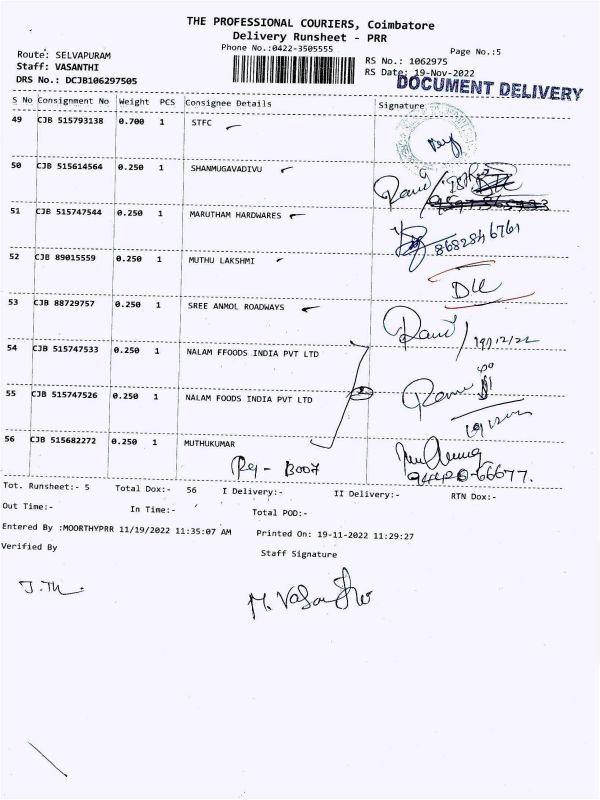 THE PROFESSIONAL COURIERS, Coimbatore
Delivery Runsheet - PRR
Phone No.:0422-3505555
Page No.:5
Route: SELVAPURAM
Staff: VASANTHI
DRS No.: DCJB106297505
RS No.: 1062975
RS Date: 19-Nov-2022
DOCUMENT DELIVERY
S No Consignment No Weight PCS Consignee Details Signature
49 CJB 515793138 0.700 1 STFC
50 CJB 515614564 0.250 1 SHANMUGAVADIVU
51 CJB 515747544 0.250 1 MARUTHAM HARDWARES
8682846761
52 CJB 89015559 0.250 1 MUTHU LAKSHMI
53 CJB 88729757 0.250 1 SREE ANMOL ROADWAYS
54 CJB 515747533 0.250 1 NALAM FFOODS INDIA PVT LTD
55 CJB 515747526 0.250 1 NALAM FOODS INDIA PVT LTD
56 CJB 515682272 0.250 1 MUTHUKUMAR
Tot. Runsheet:- 5 Total Dox:- 56 I Delivery:- II Delivery:- RTN Dox:-
Out Time:- In Time:- Total POD:-
Entered By :MOORTHYPRR 11/19/2022 11:35:07 AM Printed On: 19-11-2022 11:29:27
Verified By Staff Signature